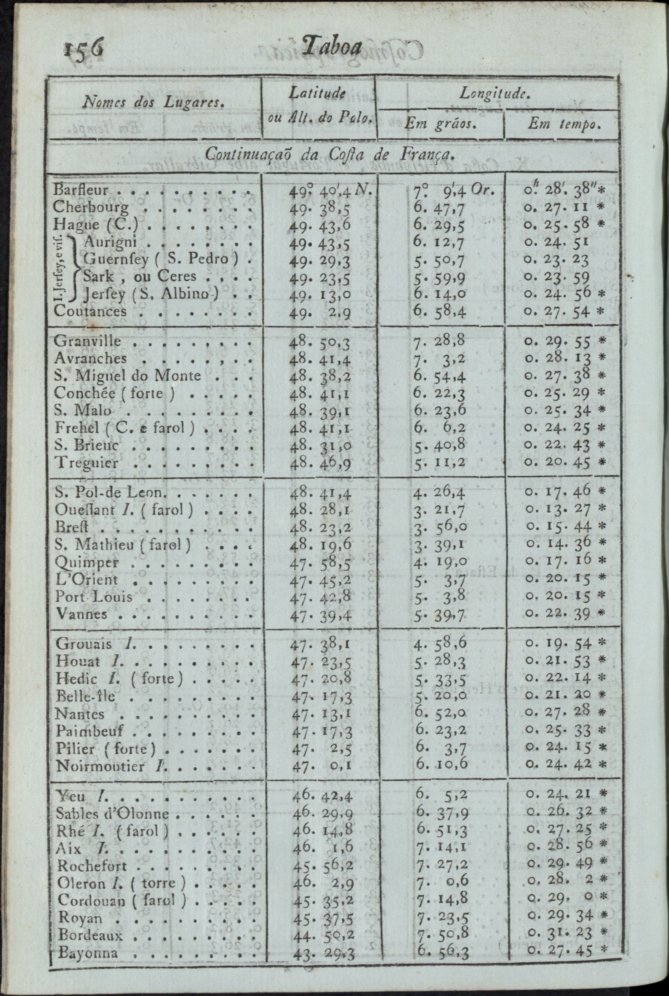 156 Taboa
Nomes dos Lugares. Latitude ou Alt. do Polo. Longitude.
Em gráos. Em tempo.
Continuaçaõ da Coſta de França.
Barfleur . . . . . . . . . . 49.° 40',4 N. 7.° 9',4 Or. 0.h 28'. 38" *
Cherbourg . . . . . . . . 49. 38,5 6. 47,7 0. 27. 11 *
Hague (C.) . . . . . . . . 49. 43,6 6. 29,5 0. 25. 58 *
I. Jerſey, e viſ.
Aurigni . . . . . . . . 49. 43,5 6. 12,7 0. 24. 51
Guernſey ( S. Pedro ) . 49. 29,3 5. 50,7 0. 23. 23
Sark , ou Ceres . . . . 49. 23,5 5. 59,9 0. 23. 59
Jerſey (S. Albino) . . 49. 13,0 6. 14,0 0. 24. 56 *
Coutances . . . . . . . . 49. 2,9 6. 58,4 0. 27. 54 *
Granville . . . . . . . . . 48. 50,3 7. 28,8 0. 29. 55 *
Avranches . . . . . . . . 48. 41,4 7. 3,2 0. 28. 13 *
S. Miguel do Monte . . . 48. 38,2 6. 54,4 0. 27. 38 *
Conchée ( forte ) . . . . . 48. 41,1 6. 22,3 0. 25. 29 *
S. Malo . . . . . . . . . . 48. 39,1 6. 23,6 0. 25. 34 *
Frehel ( C. e farol ) . . . . 48. 41,1 6. 6,2 0. 24. 25 *
S. Brieuc . . . . . . . . . 48. 31,0 5. 40,8 0. 22. 43 *
Treguier . . . . . . . . . 48. 46,9 5. 11,2 0. 20. 45 *
S. Pol-de Leon. . . . . . . 48. 41,4 4. 26,4 0. 17. 46 *
Oueſſant I. ( farol ) . . . . 48. 28,1 3. 21,7 0. 13. 27 *
Breſt . . . . . . . . . . . 48. 23,2 3. 56,0 0. 15. 44 *
S. Mathieu ( farol ) . . . . 48. 19,6 3. 39,1 0. 14. 36 *
Quimper . . . . . . . . . 47. 58,5 4. 19,0 0. 17. 16 *
L'Orient . . . . . . . . . 47. 45,2 5. 3,7 0. 20. 15 *
Port Louis . . . . . . . . 47. 42,8 5. 3,8 0. 20. 15 *
Vannes . . . . . . . . . . 47. 39,4 5. 39,7 0. 22. 39 *
Grouais I. . . . . . . . . . 47. 38,1 4. 58,6 0. 19. 54 *
Houat I. . . . . . . . . . 47. 23,5 5. 28,3 0. 21. 53 *
Hedic I. ( forte ) . . . . . 47. 20,8 5. 33,5 0. 22. 14 *
Belle-île . . . . . . . . . 47. 17,3 5. 20,0 0. 21. 20 *
Nantes . . . . . . . . . . 47. 13,1 6. 52,0 0. 27. 28 *
Paimbeuf . . . . . . . . . 47. 17,3 6. 23,2 0. 25. 33 *
Pilier ( forte ) . . . . . . . 47. 2,5 6. 3,7 0. 24. 15 *
Noirmoutier I. . . . . . . 47. 0,1 6. 10,6 0. 24. 42 *
Yeu I. . . . . . . . . . . 46. 42,4 6. 5,2 0. 24. 21 *
Sables d'Olonne . . . . . . 46. 29,9 6. 37,9 0. 26. 32 *
Rhé I. ( farol ) . . . . . . 46. 14,8 6. 51,3 0. 27. 25 *
Aix I. . . . . . . . . . . 46. 1,6 7. 14,1 0. 28. 56 *
Rochefort . . . . . . . . . 45. 56,2 7. 27,2 0. 29. 49 *
Oleron I. ( torre ) . . . . . 46. 2,9 7. 0,6 0. 28. 2 *
Cordouan ( farol ) . . . . . 45. 35,2 7. 14,8 0. 29. 0 *
Royan . . . . . . . . . . 45. 37,5 7. 23,5 0. 29. 34 *
Bordeaux . . . . . . . . . 44. 50,2 7. 50,8 0. 31. 23 *
Bayonna . . . . . . . . . 43. 29,3 6. 56,3 0. 27. 45 *